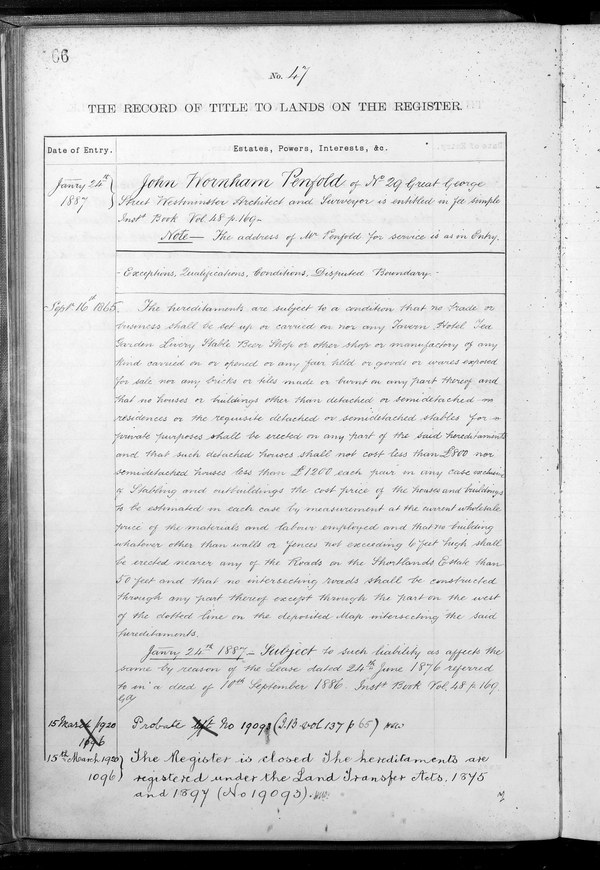 66
No. 47
THE RECORD OF TITLE TO LANDS ON THE REGISTER.
Date of Entry.
Estates, Powers, Interests, &c.
Janry 24th 1887
John Wornham Penfold of No 29 Great George
Street Westminster Architect and Surveyor is entitled in fee simple
Inst. Book Vol. 48 p. 169 -
Note - The address of Mr Penfold for service is as in Entry.
- Exceptions, Qualifications, Conditions, Disputed Boundary. -
Septr 16th 1865.
The hereditaments are subject to a condition that no trade or
business shall be set up or carried on nor any Tavern Hotel Tea
Garden Livery Stable Beer Shop or other shop or manufactory of any
kind carried on or opened or any fair held or goods or wares exposed
for sale nor any bricks or tiles made or burnt on any part thereof and
that no houses or buildings other than detached or semidetached
residences or the requisite detached or semidetached stables for
private purposes shall be erected on any part of the said hereditaments
and that such detached houses shall not cost less than £800 nor
semidetached houses less than £1200 each pair in any case exclusive
of Stabling and outbuildings the cost price of the houses and buildings
to be estimated in each case by measurement at the current wholesale
price of the materials and labour employed and that no building
whatever other than walls or fences not exceeding 6 feet high shall
be erected nearer any of the Roads on the Shortlands Estate than
50 feet and that no intersecting roads shall be constructed
through any part thereof except through the part on the west
of the dotted line on the deposited Map intersecting the said
hereditaments.
Janry 24th 1887 - Subject to such liability as affects the
same by reason of the Lease dated 24th June 1876 referred
to in a deed of 10th September 1886. Inst. Book Vol. 48 p. 169.
15 March 1920
1096
Probate No 19093 (I.B vol 137 p 65)
15th March 1920
1096
The Register is closed The hereditaments are
registered under the Land Transfer Acts. 1875
and 1897 (No 19093).